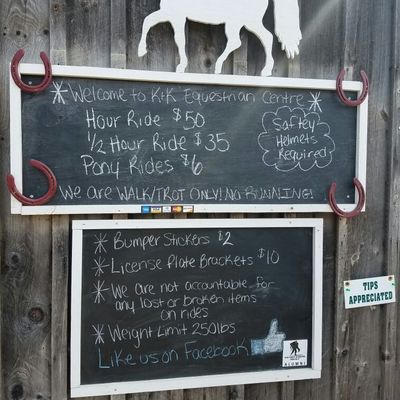 * Welcome to K+K Equestrian Centre *
Hour Ride $50
1/2 Hour Ride $35
Pony Rides $6
Saftey
Helmets
Required
We are WALK/TROT ONLY! NO RUNNING!
* Bumper Stickers $2
* License Plate Brackets $10
* We are not accountable for
any lost or broken items
on rides
* Weight Limit 250lbs
Like us on Facebook
ALUMNI
TIPS
APPRECIATED